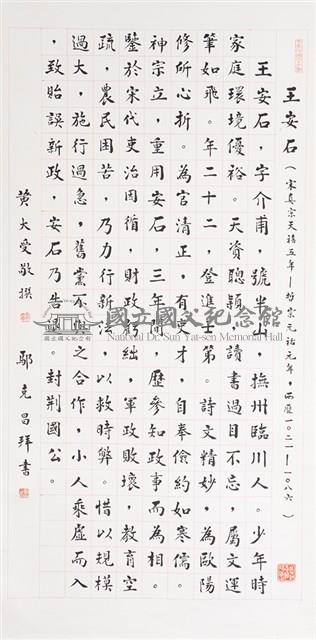 王安石（宋真宗天禧五年—哲宗元祐元年，西歷一〇二一—一〇八六）
王安石，字介甫，號半山，撫州臨川人。少年時
家庭環境優裕。天資聰穎，讀書過目不忘，屬文運
筆如飛。年二十二，登進士第。詩文精妙，為歐陽
修所心折。為官清正，有吏才，自奉儉約如寒儒。
神宗立，重用安石，三年間，歷參知政事而為相。
鑒於宋代吏治因循，財政窮絀，軍政敗壞，教育空
疏，農民困苦，乃力行新法，以救時弊。惜以規模
過大，施行過急，舊黨不與之合作，小人乘虛而入
，致貽誤新政，安石乃告退。封荆國公。
黃大受敬撰
鄢克昌拜書
國立國父紀念館
National Dr. Sun Yat-sen Memorial Hall